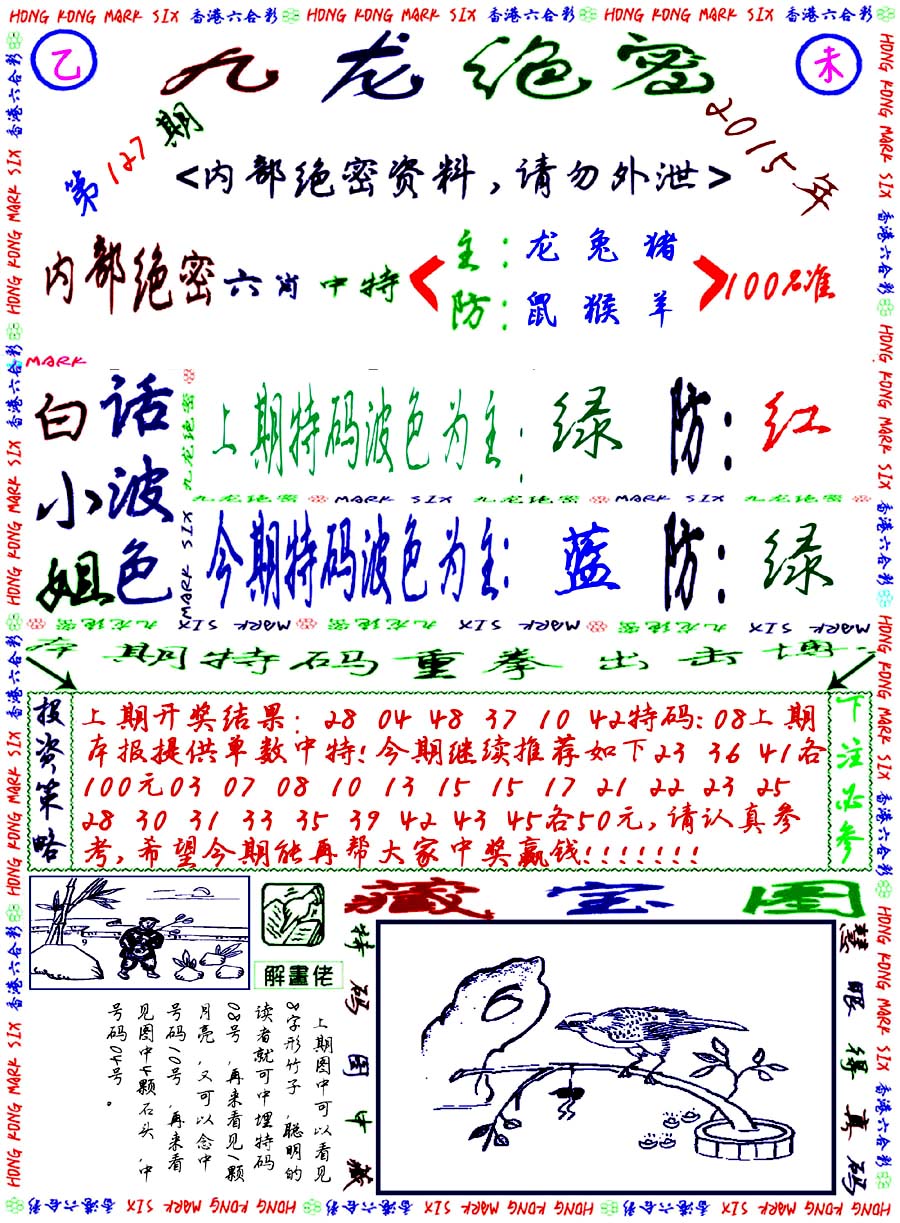 HONG KONG MARK SIX 香港六合彩 HONG KONG MARK SIX 香港六合彩 HONG KONG MARK SIX 香港六合彩
乙
九龙绝密
未
第127期
2015年
<内部绝密资料,请勿外泄>
内部绝密六肖中特
主:龙兔猪
防:鼠猴羊
100%准
MARK
白小姐
话波色
上期特码波色为主:绿 防:红
九龙绝密 MARK SIX 九龙绝密 MARK SIX 九龙绝密
今期特码波色为主:蓝 防:绿
九龙绝密 MARK SIX 九龙绝密 MARK SIX 九龙绝密 MARK SIX
本期特码重拳出击搏
投资策略
上期开奖结果:28 04 48 37 10 42特码:08上期
本报提供单数中特!今期继续推荐如下23 36 41各
100元03 07 08 10 13 15 15 17 21 22 23 25
28 30 31 33 35 39 42 43 45各50元,请认真参
考,希望今期能再帮大家中奖赢钱!!!!!!!
下注必参
解畫佬
上期图中可以看见
8字形竹子,聪明的
读者就可中埋特码
08号,再来看见1颗
月亮,又可以念中
号码10号,再来看
见图中4颗石头,中
号码04号。
藏宝图
特码图中藏
慧眼得真码
HONG KONG MARK SIX 香港六合彩 HONG KONG MARK SIX 香港六合彩 HONG KONG MARK SIX 香港六合彩